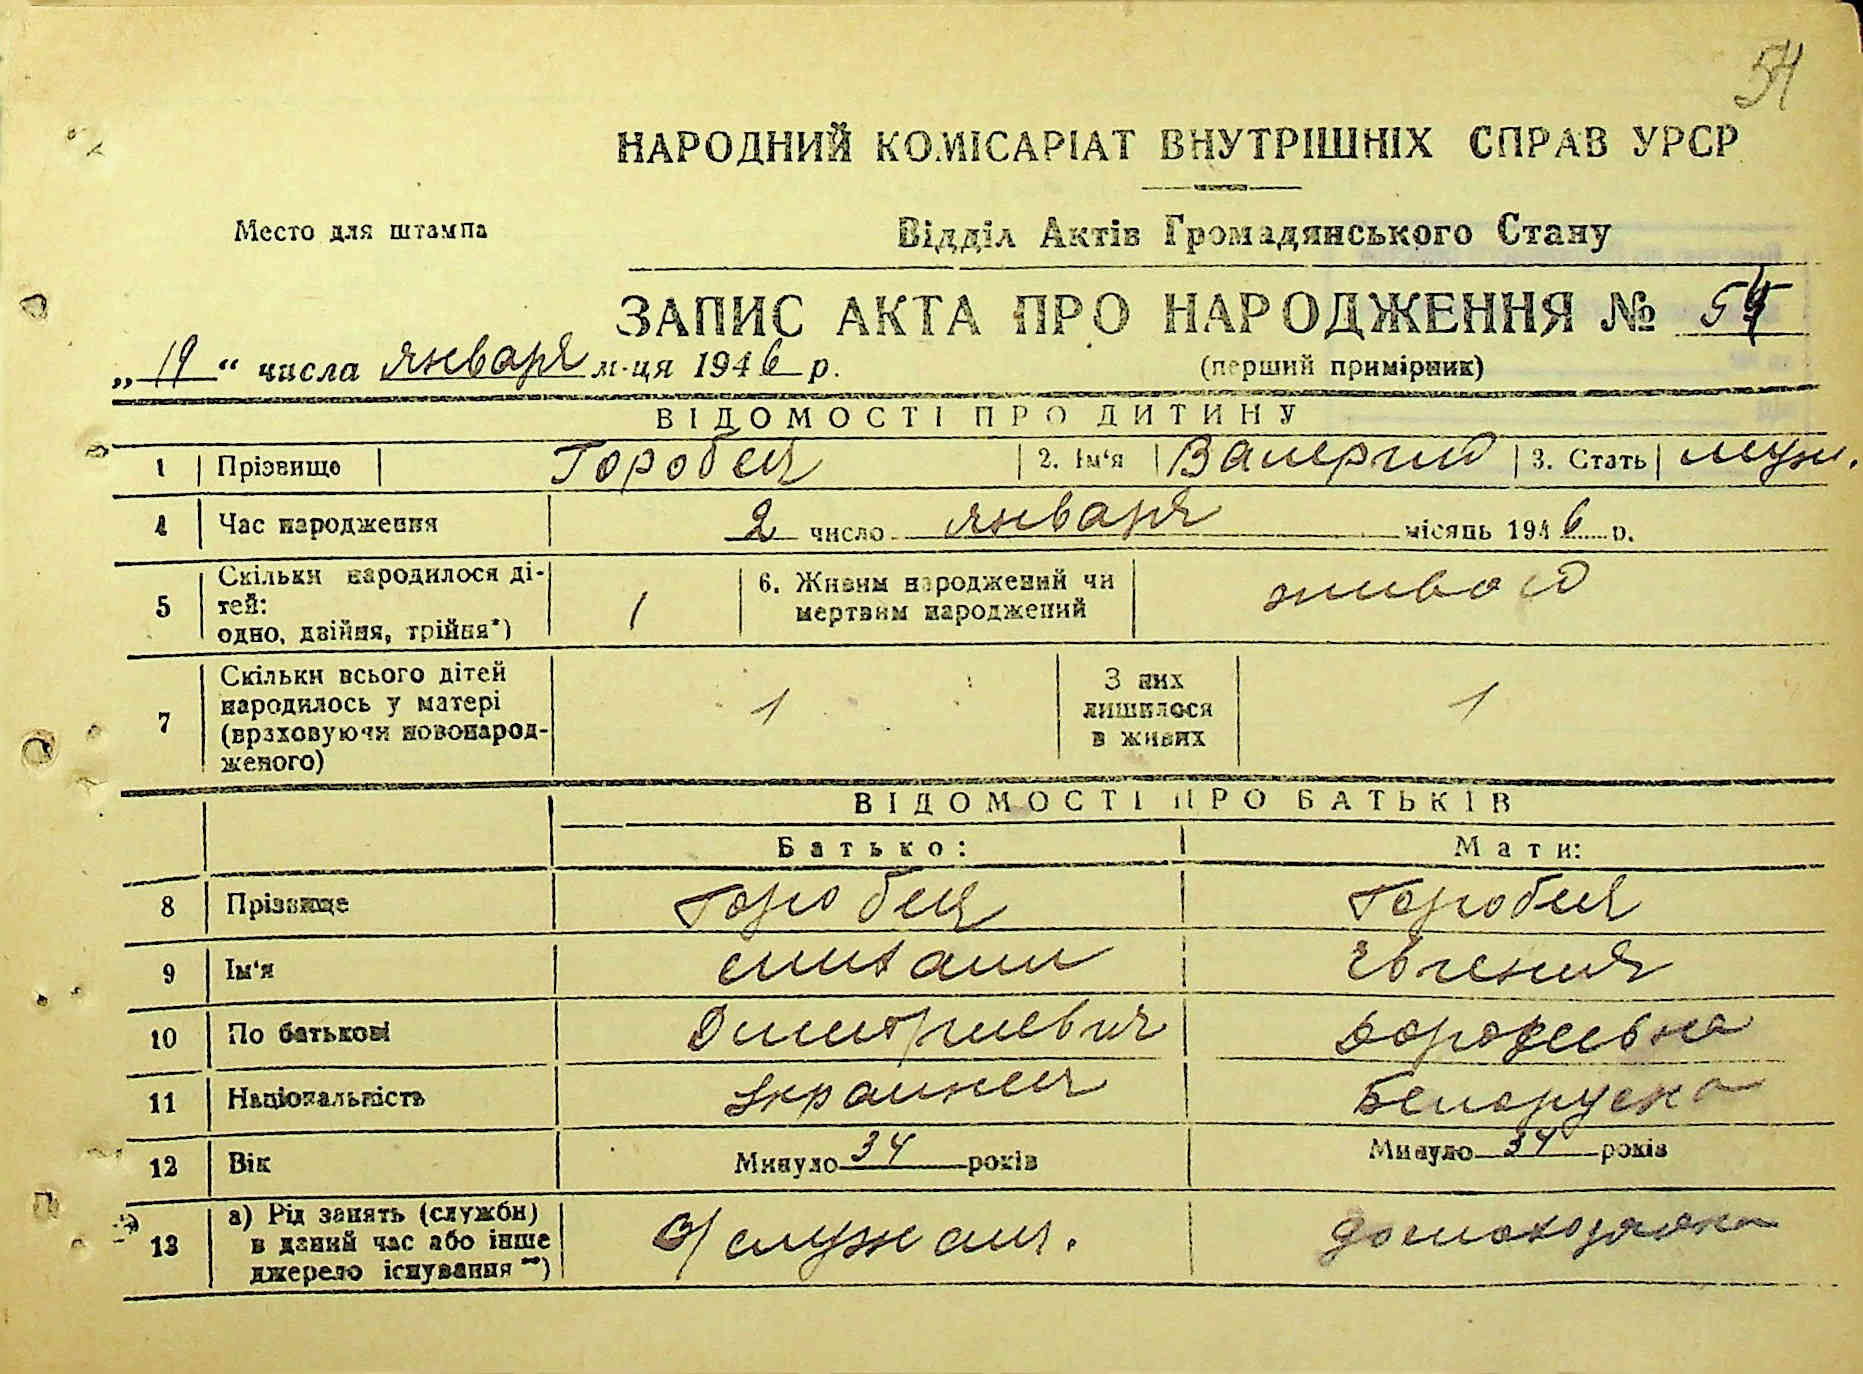 54
НАРОДНИЙ КОМІСАРІАТ ВНУТРІШНІХ СПРАВ УРСР
Место для штампа
Відділ Актів Громадянського Стану
ЗАПИС АКТА ПРО НАРОДЖЕННЯ № 54
„19“ числа января м-ця 1946 р.
(перший примірник)
ВІДОМОСТІ ПРО ДИТИНУ
1 Прізвище Горобец 2. Ім‘я Валерий 3. Стать муж.
4 Час народження 2 число января місяць 1946 р.
5 Скільки народилося ді-
тей:
одно, двійня, трійня*) 1
6. Живим народжений чи
мертвим народжений живой
7 Скільки всього дітей
народилось у матері
(враховуючи новонарод-
женого) 1
З них
лишилося
в живих 1
ВІДОМОСТІ ПРО БАТЬКІВ
Батько: Мати:
8 Прізвище Горобец Горобец
9 Ім‘я Михаил Евгения
10 По батькові Дмитриевич Дорофеевна
11 Національність Украинец Белоруска
12 Вік Минуло 34 років Минуло 34 років
13 а) Рід занять (служби)
в даний час або інше
джерело існування **) служащ. домохозяйка